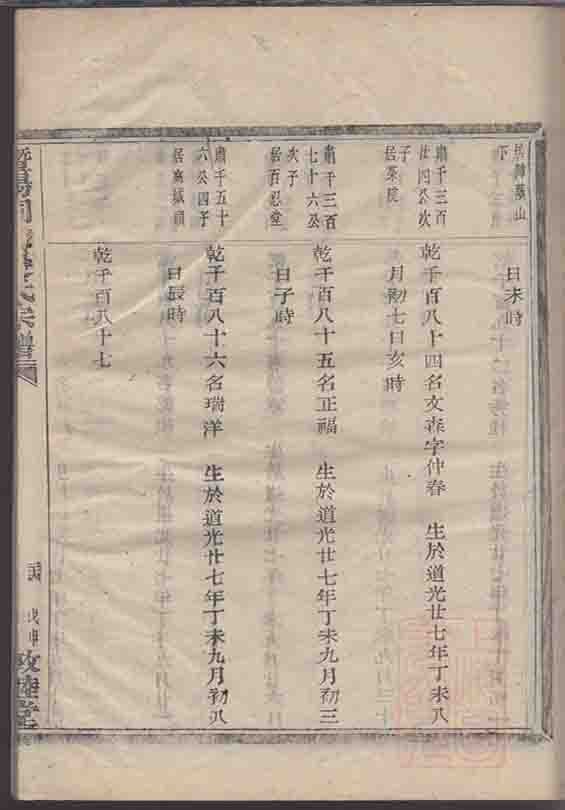 居 山
下
日未時
肅千三百
廿四公次
子
居菜院
乾千百八十四名文森字仲春 生於道光廿七年丁未八
月初七日亥時
肅千三百
七十六公
次子
居百忍堂
乾千百八十五名正福 生於道光廿七年丁未九月初三
日子時
肅千五十
六公四子
居 城
乾千百八十六名瑞洋 生於道光廿七年丁未九月初八
日辰時
乾千百八十七
宗譜
戊申
敦睦堂